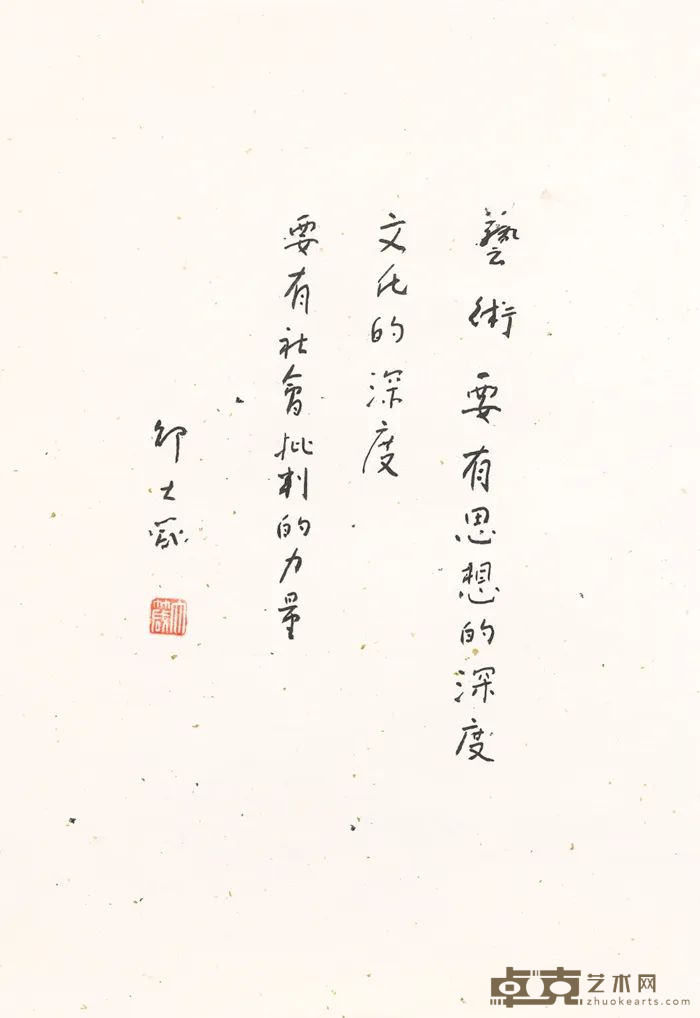 藝術要有思想的深度
文化的深度
要有社會批判的力量
邵大箴
大箴
卓克艺术网
zhuokearts.com